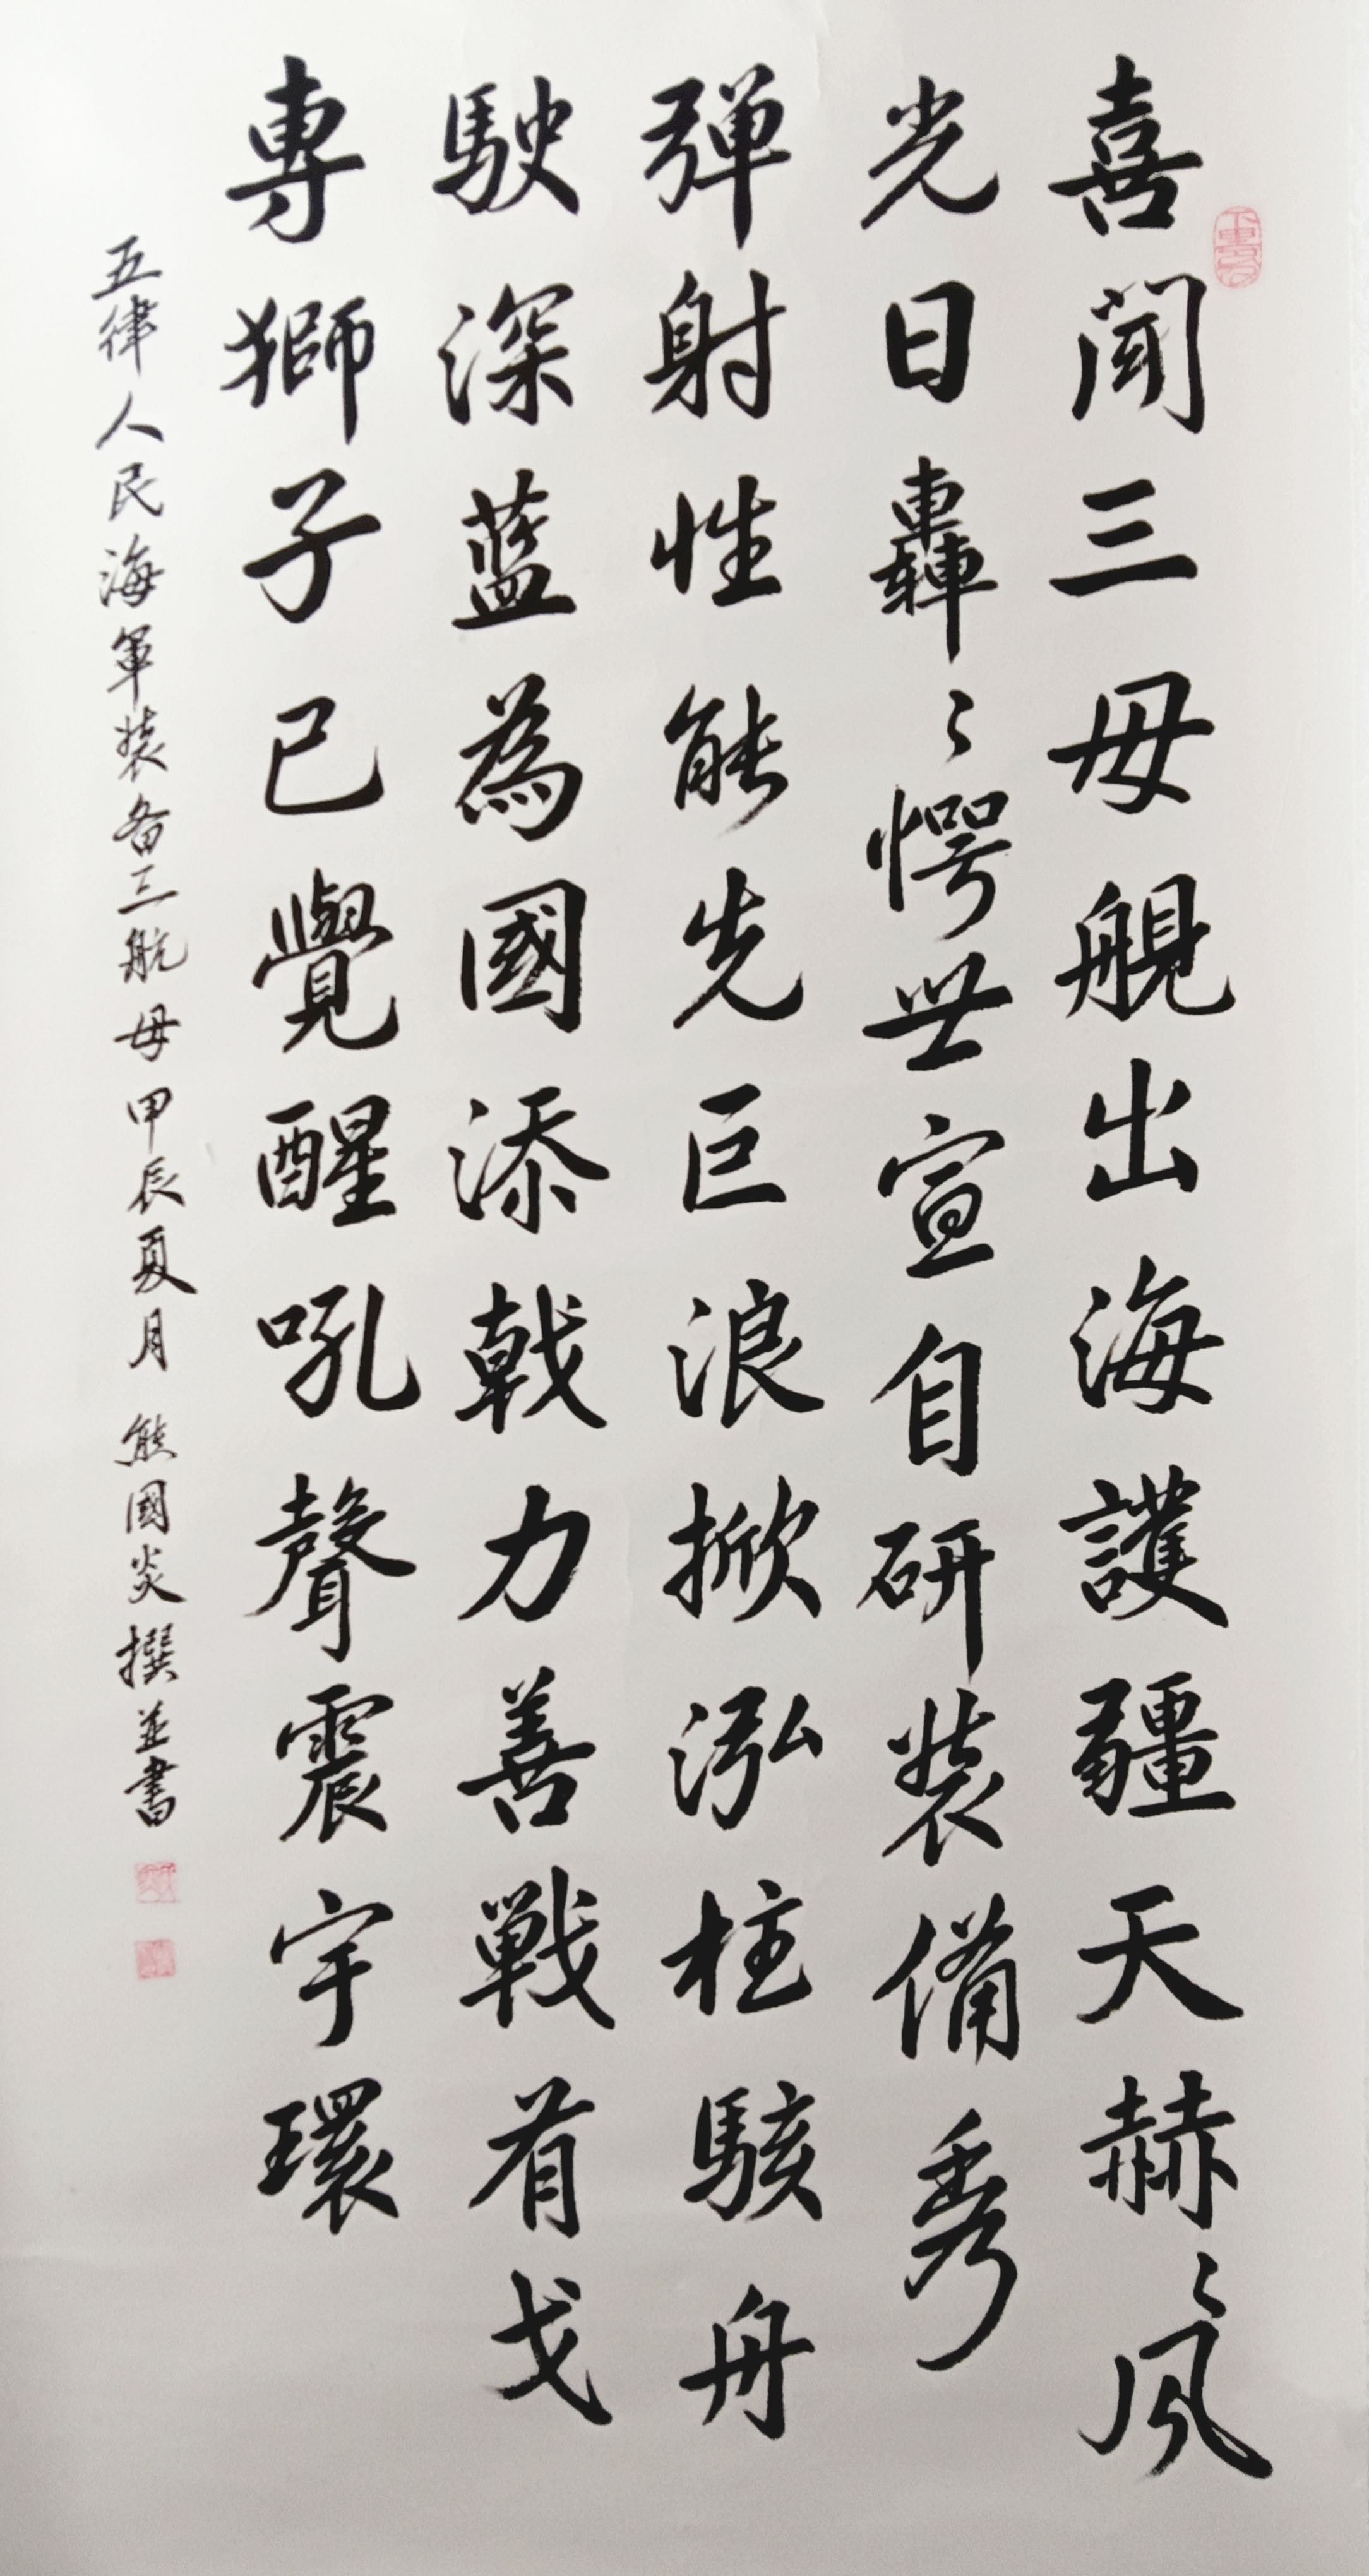 喜聞三母艦出海護疆天赫〻風
光日轟〻愕世宣自研裝備秀
彈射性能先巨浪掀泓柱駭舟
駛深藍為國添戟力善戰有戈
專獅子已覺醒吼聲震宇環
五律人民海軍裝备三航母甲辰夏月熊國炎撰並書